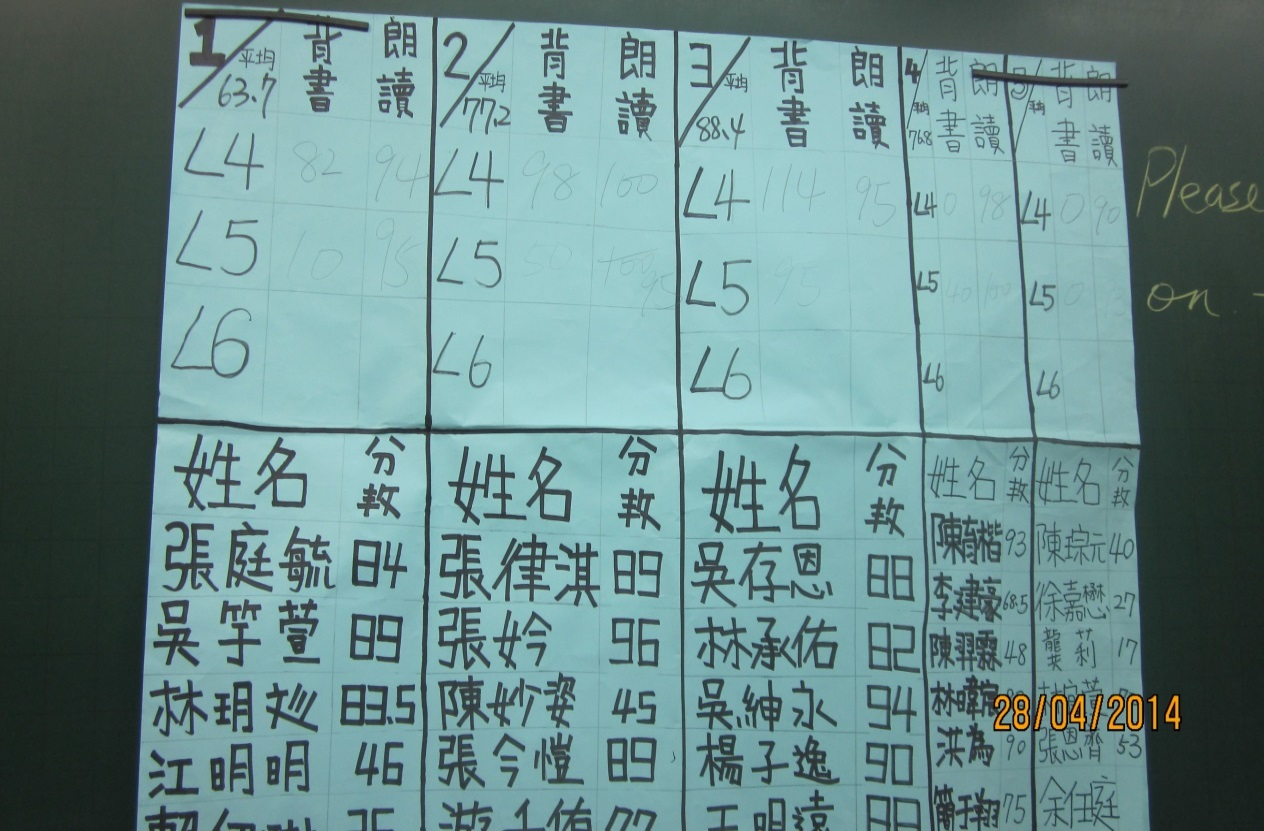 1/平均63.7 背書 朗讀 2/平均77.2 背書 朗讀 3/平均88.4 背書 朗讀 4/平均76.8 背書 朗讀 5/平均 背書 朗讀
L4 82 94 L4 98 100 L4 114 95 L4 0 98 L4 0 90
L5 10 95 L5 50 95 L5 95 L5 40 100 L5 0
L6 L6 L6 L6 L6
姓名 分数 姓名 分数 姓名 分数 姓名 分数 姓名 分数
張庭毓 84 張律淇 89 吳存恩 88 陳育楷 93 陳琮元 40
吳竽萱 89 張妗 96 林承佑 82 李建豪 68.5 徐嘉懋 27
林玥彣 83.5 陳妙姿 45 吳紳永 94 陳羿霖 48 龔莉 17
江明明 46 張今愷 89 楊子逸 90 洪為 90 張恩齊 53
王明遠 簡于翔 75 余任庭
Please
on
28/04/2014